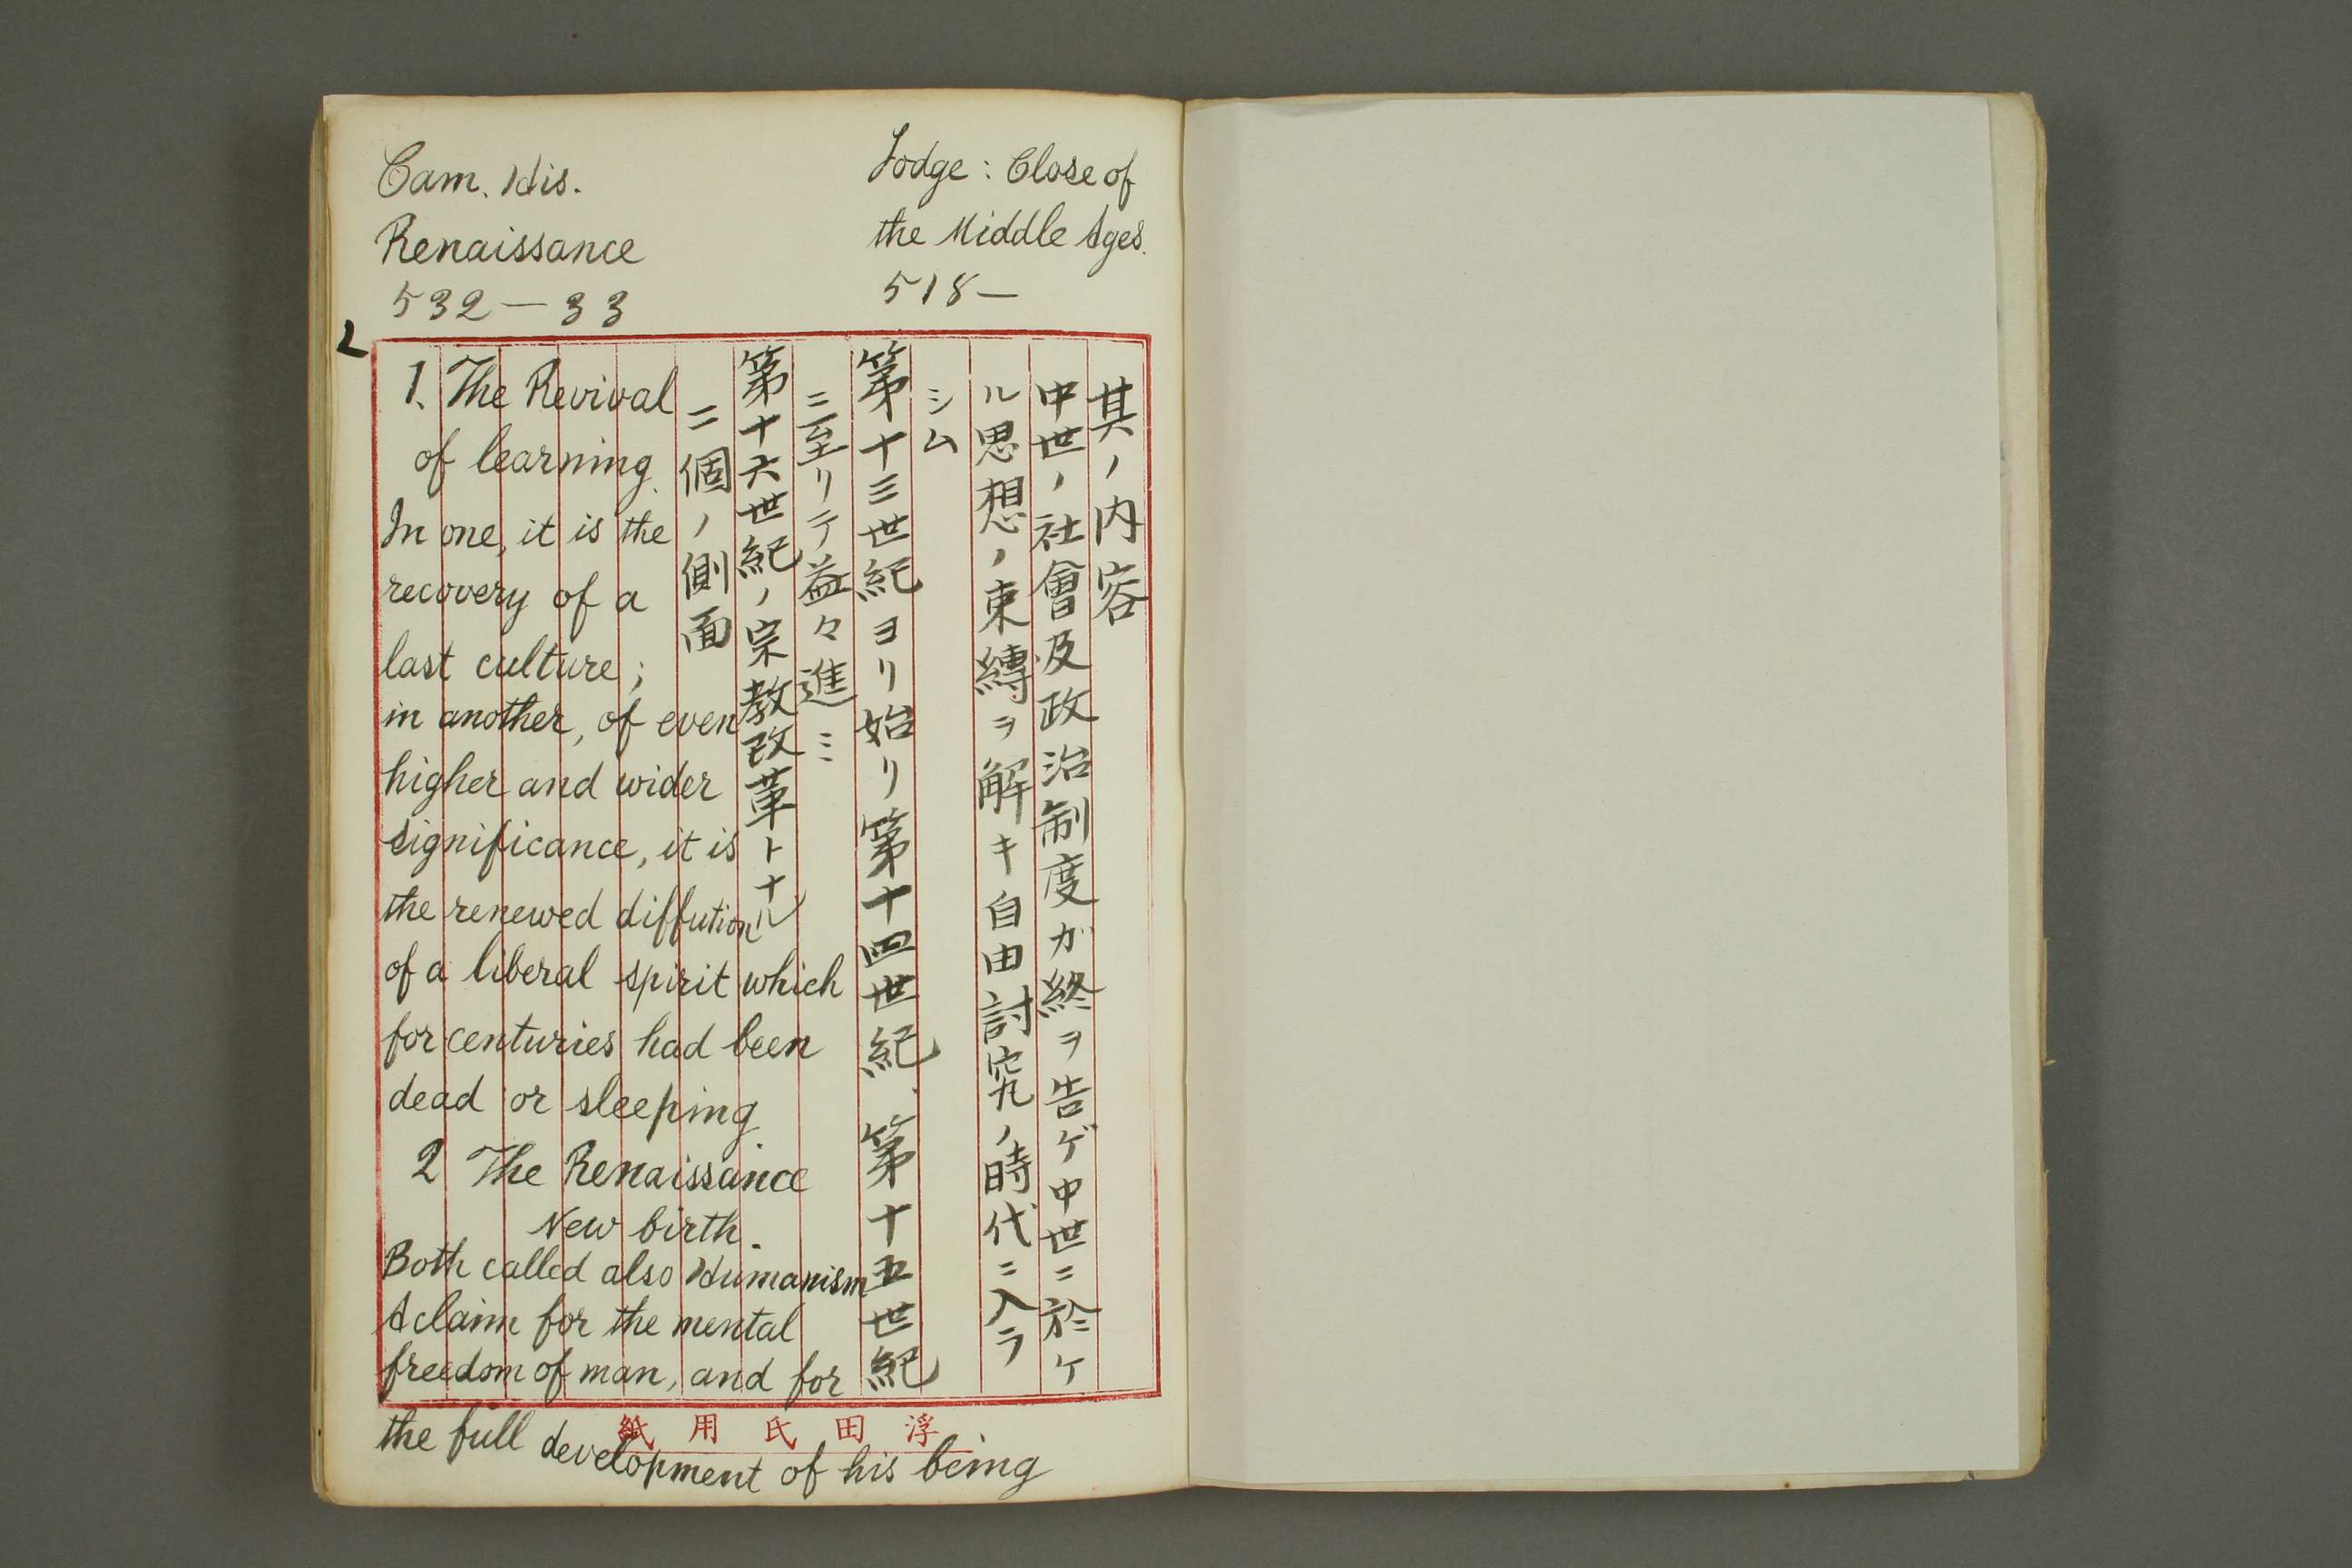 Cam. His.
Renaissance
532—33
Lodge: Close of
the Middle Ages.
518—
其ノ内容
中世ノ社會及政治制度ガ終ヲ告ゲ中世ニ於ケ
ル思想ノ束縛ヲ解キ自由討究ノ時代ニ入ラ
シム
第十三世紀ヨリ始リ第十四世紀、第十五世紀
ニ至リテ益々進ミ
第十六世紀ノ宗教改革トナル
二個ノ側面
1. The Revival
of learning.
In one, it is the
recovery of a
last culture;
in another, of even
higher and wider
significance, it is
the renewed diffution
of a liberal spirit which
for centuries had been
dead or sleeping.
2 The Renaissance
New birth.
Both called also Humanism
A claim for the mental
freedom of man, and for
the full development of his being
浮田氏用紙